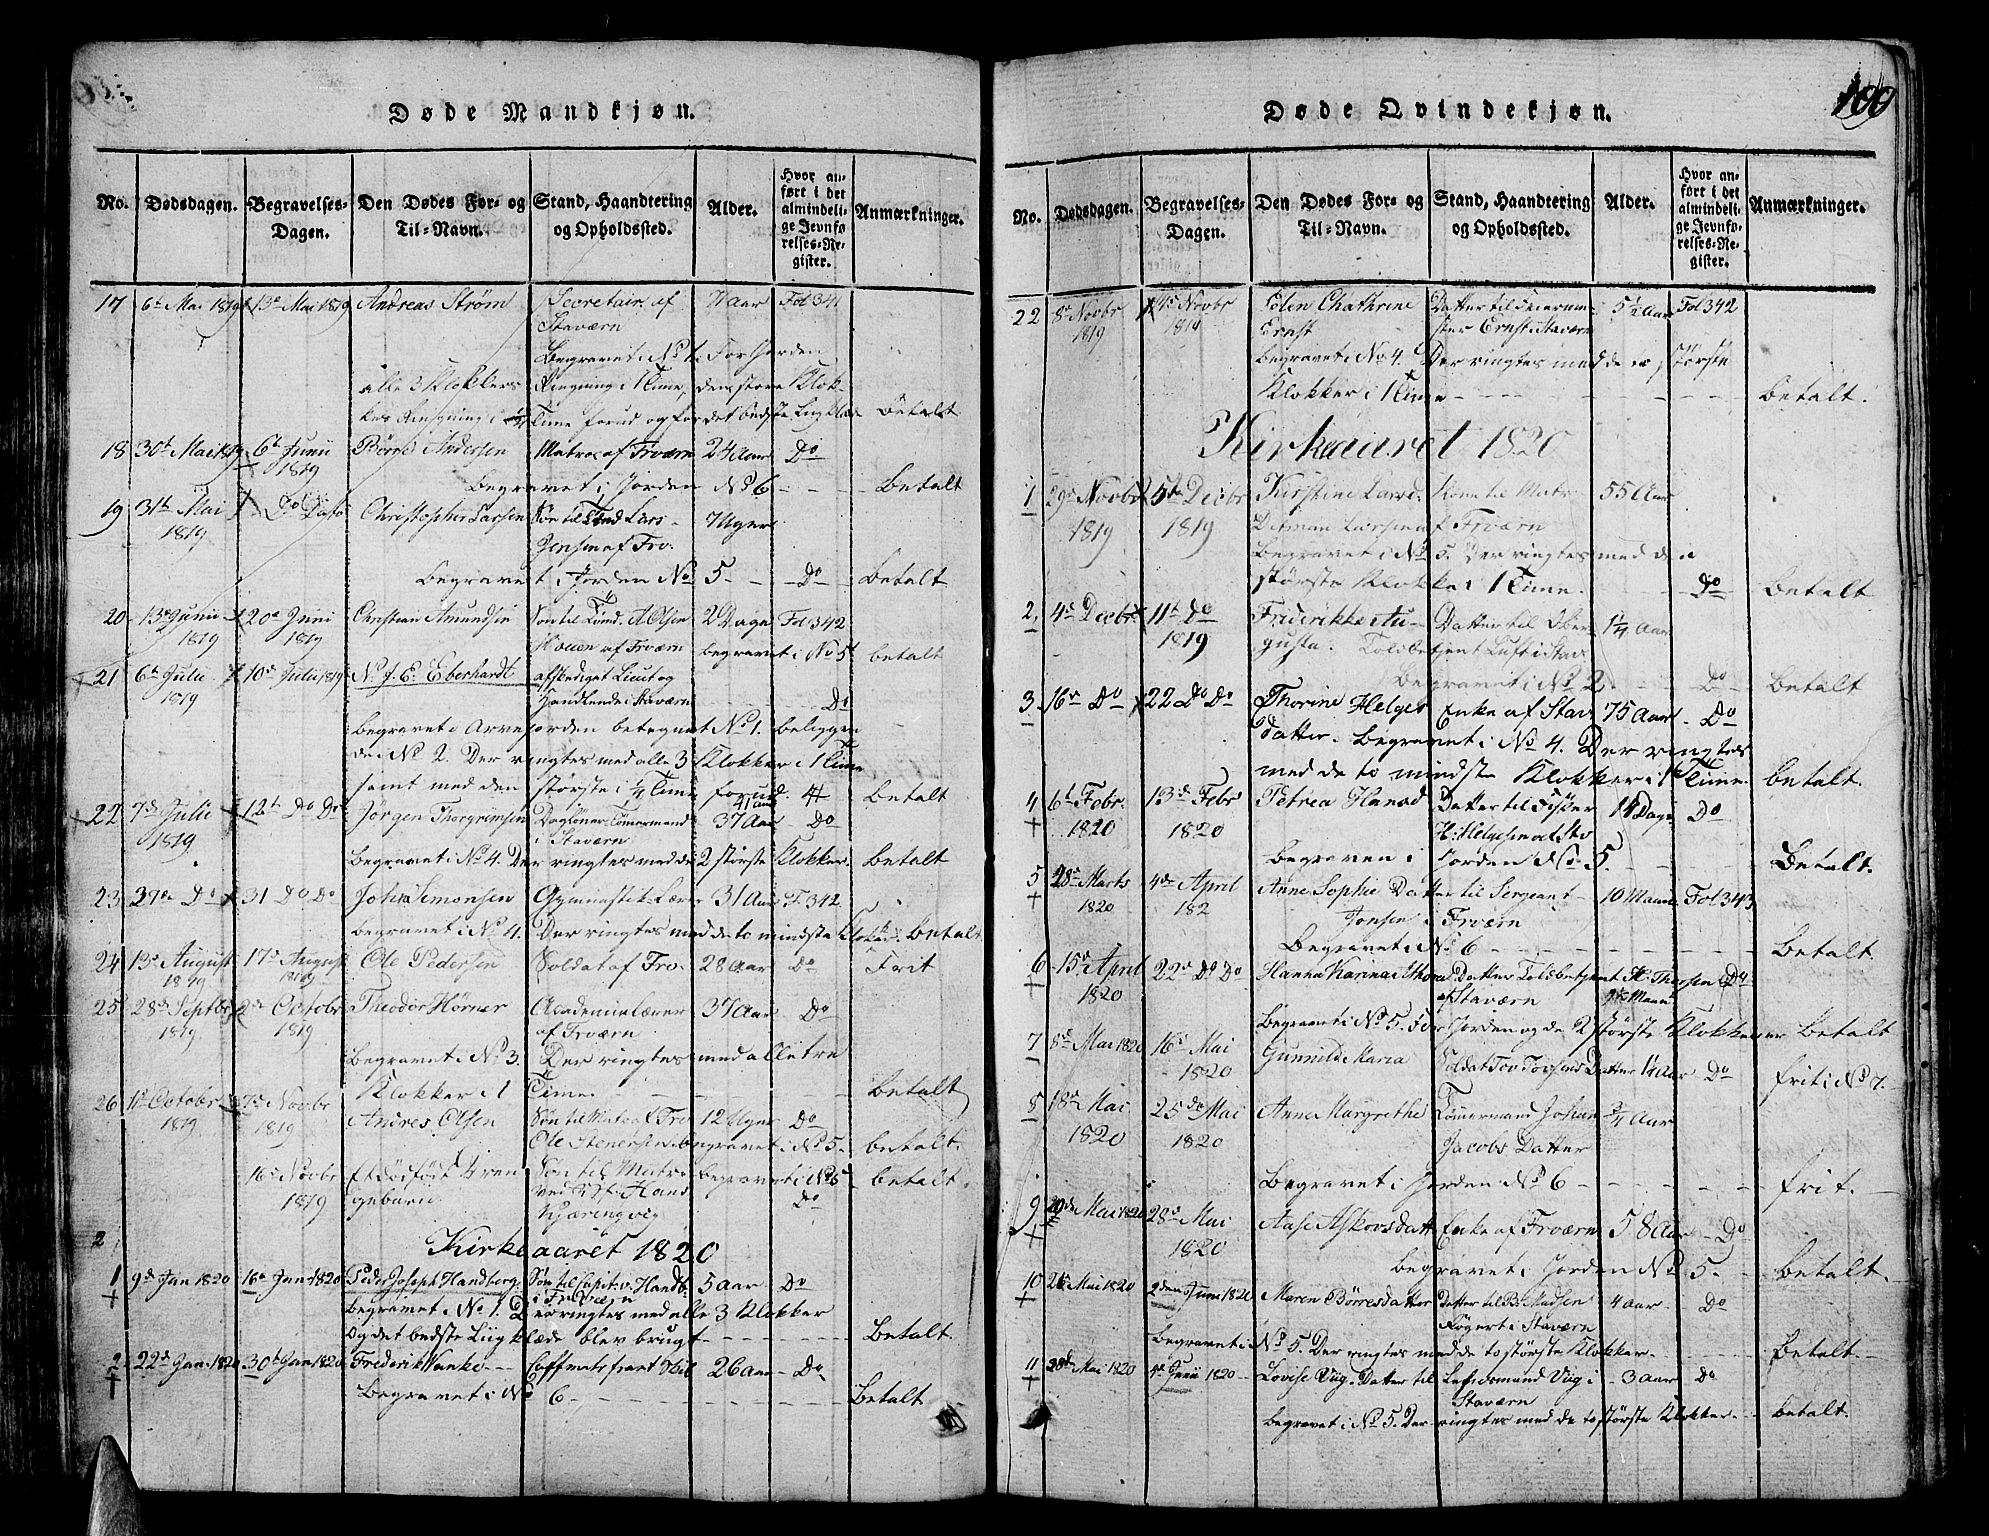 Døde Mandkjøn.
No. Dødsdagen. Begravelses-Dagen. Den Dødes For- og Til-Navn. Stand, Haandtering og Opholdssted. Alder. Hvor anført i det almindelige Jevnførelses-Register. Anmærkninger.
17 6te Mai 1819 13de Mai 1819 Andreas Strøm Secretair af 71 aar Fol 341
Staværn
Begravet i No 1. For Jorden
alle 3 Klokkers Ringning i 1 Time, den store Klok-
kes Ringning i 1/4 Time forud og for det bedste Liigklæde Betalt
18 30te Mai 1819 6te Junii Børre Andersen Matros af Frværn 24 Aar Do
1819
Begravet i Jorden No 6 - - - Betalt
19 31te Mai Do Dato Christopher Larsen Søn til Lars 7 Uger
1819
Jensen af Fr.
Begravet i Jorden No 5 - - Do Betalt
20 13de Junii 20de Juni Christian Amundsen Søn til A. Olsen 2 Dage Fol 342
1819 1819
Houen af Frværn begravet i No 5 betalt
21 6te Julii 10de Julii 1819 N. J. E. Eberhardt afskediget Lieut og
1819
Handlende i Staværn Do
Begravet i Arvejorden betegnet No 1. beliggen
de i No 2. Der ringtes med alle 3 Klokker i 1 Time
samt med den største i 1/4 Time forud. Betalt
41 aar
22 7de Julii 12te Do Do Jørgen Thorgremsen Dagløner Tømermand 37 Aar Do
1819 i Staværn
Begravet i No 4. Der ringtes med de 2 største Klokker. Betalt
23 27de Do 31 Do Do Johs Simonsen Gymnastik Lærer 31 Aar F 342
begravet i No 4. Der ringtes med de to mindste Klokker. Betalt
24 13de August 17de August Ole Pedersen Soldat af Fr. 28 Aar Do Frit
1819 1819
25 28de Septbr 2de Octobr Theodor Hørner Academielærer 37 Aar Do
1819 1819
af Frværn
Begravet i No 3. Der ringtes med alle tre
Klokker i 1 Time. - - - Betalt
26 Octobr 7de Novbr Andres Olsen Søn til Mat af Fr 12 Uger Do
1819 1819
Ole Stenersen begravet i No 5. betalt.
16de Novbr Et dødfødt Dren Søn til Matr begravet i No 5 betalt.
1819 gebarn ved Hans Do
Kjæringvig
2 Kirkeaaret 1820
1 9de Jan 1820 16de Jan 1820 Peder Joseph Handberg Søn til Capit v. Handb. 5 aar Do
i Frværn
Begravet i No 1. Der ringtes med alle 3 Klokker
Og det bedste Liigklæde blev brugt - - - Betalt.
2 22de Jan 1820 30te Jan 1820 Frederik Wanke 26 Aar - Do
Begravet i No 6 - - - Betalt
Døde Qvindekjøn.
199
No. Dødsdagen. Begravelses-Dagen. Den Dødes For- og Til-Navn. Stand, Haandtering og Opholdssted. Alder. Hvor anført i det almindelige Jevnførelses-Register. Anmærkninger.
22 8de Novbr Novbr Elen Chathrine Datter til 5 1/2 Aar Fol 342
1819 1819 Ernst ster Ernst i Staværn
Begravet i No 4. Der ringtes med de to største
Klokker i 1 Time - - - betalt.
Kirkeaaret 1820
1 29de Novbr 5te Decbr Kirstine Larsd. Kone til Matr 55 Aar
1819 1819 Ditman Larsen af Frværn
Begravet i No 5. Der ringtes med den
største Klokke i 1 Time. Do betalt
2 4de Decbr 11te Do Fridrikke Au- Datter til Ober 1 1/4 Aar
1819 gusta. Toldbetjent Luft i Stav
Begravet i No 2. - - Do - betalt
3 16de Do 22 Do Do Thorine Helges Enke af Stav 75 Aar - Do
datter. Begravet i No 4. Der ringtes
med de to mindste Klokker i 1 Time. betalt.
4 6te Febr. 13de Febr Petrea Hansd Datter til Fisker 14 Dage Do
1820 1820 H: Helgesen af Stv
begraven i Jorden No 5. - - - Betalt.
5 28de Marts 4de April Anne Sophie Datter til Sergeant 10 Maan Fol 343
1820 182 Jensen i Frværn
Begravet i No 6 - - - Betalt
6 15de April 22de Do Do Hanna Karina Datter Toldbetjent H: Thorsen Do
1820 af Staværn 9 Maan
Begravet i No 5. For Jorden og de 2 største Klokkener Betalt
7 8de Mai 1820 16de Mai Gunnild Maria Soldat Tov Tovsens Datter 1/4 Aar Do frit i No 7.
1820
8 18de Mai 25de Mai Anne Margrethe Tømermand Johan 3/4 Aar
1820 1820 Jacobs Datter
Begravet i Jorden No 6 - - - frit.
9 20de Mai 1820 28de Mai Aase Askovsdatt Enke af Frværn 58 Aar - Do
1820
Begravet i Jorden No 5. - betalt.
10 26 Mai 1820 2den Juni 1820 Maren Børresdatter Datter til B: Madsen 4 aar Do
Røgert i Staværn
Begravet i No 5. Der ringtes med de to største Klokker. - - - betalt.
11 28de Mai 1820 Junii 1820 Lovise Viig. Datter til Lehnsmand Viig i 3 aar Do
Staværn
begravet i No 5. Der ringtes med de to største Klokker. - - betalt.